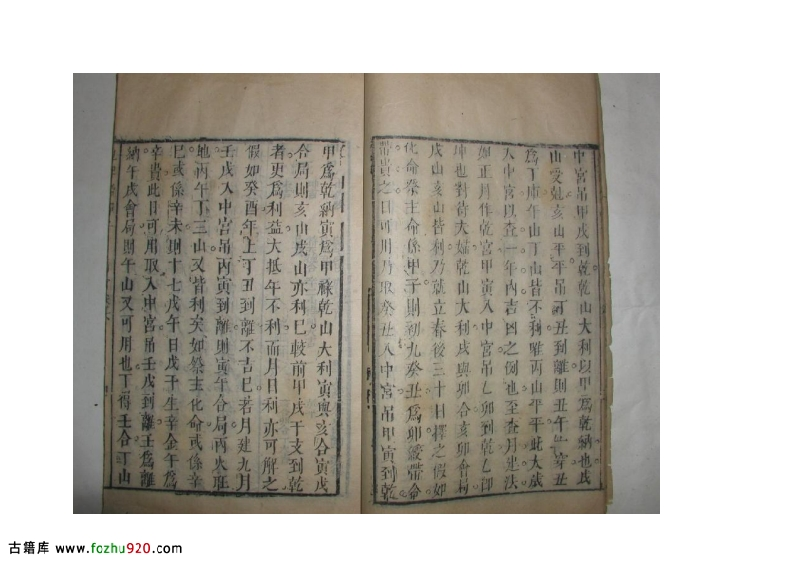 中宮吊甲戌到乾乾山大利以甲爲乾納也戌
山受尅亥山平平吊丁丑到離則丑午 穿丑
爲丁庫午山丁山皆不利唯丙山平平此太歲
入中宮以查一年內吉凶之例也至查月建法
如正月作乾宮甲寅入中宮吊乙卯到乾乙卽
坤也對待大嬚乾山大利戌與卯合亥卯會局
戌山亥山皆利乃就立春後三十日擇之假如
化命祭主命係甲子則初九癸丑爲卯 帶命
帶貴之日可用乃取癸丑入中宮吊甲寅到乾
甲爲乾納寅爲甲祿乾山大利寅與亥合寅戌
合局則亥山戌山亦利巳較前甲戌干支到乾
者更爲利益大抵年不利而月日利亦可解之
假如癸酉年上丁丑到離不吉巳若月建九月
壬戌入中宮吊丙寅到離則寅午合局丙火旺
地丙午丁三山又皆利矣如祭主化命或係辛
巳或係辛未則十七戊午日戊干生辛金午爲
辛貴此日可用取入中宮吊壬戌到離壬爲離
納午戌會局則午山又可用也丁得壬合丁山
古籍库 www.fozhu920.com